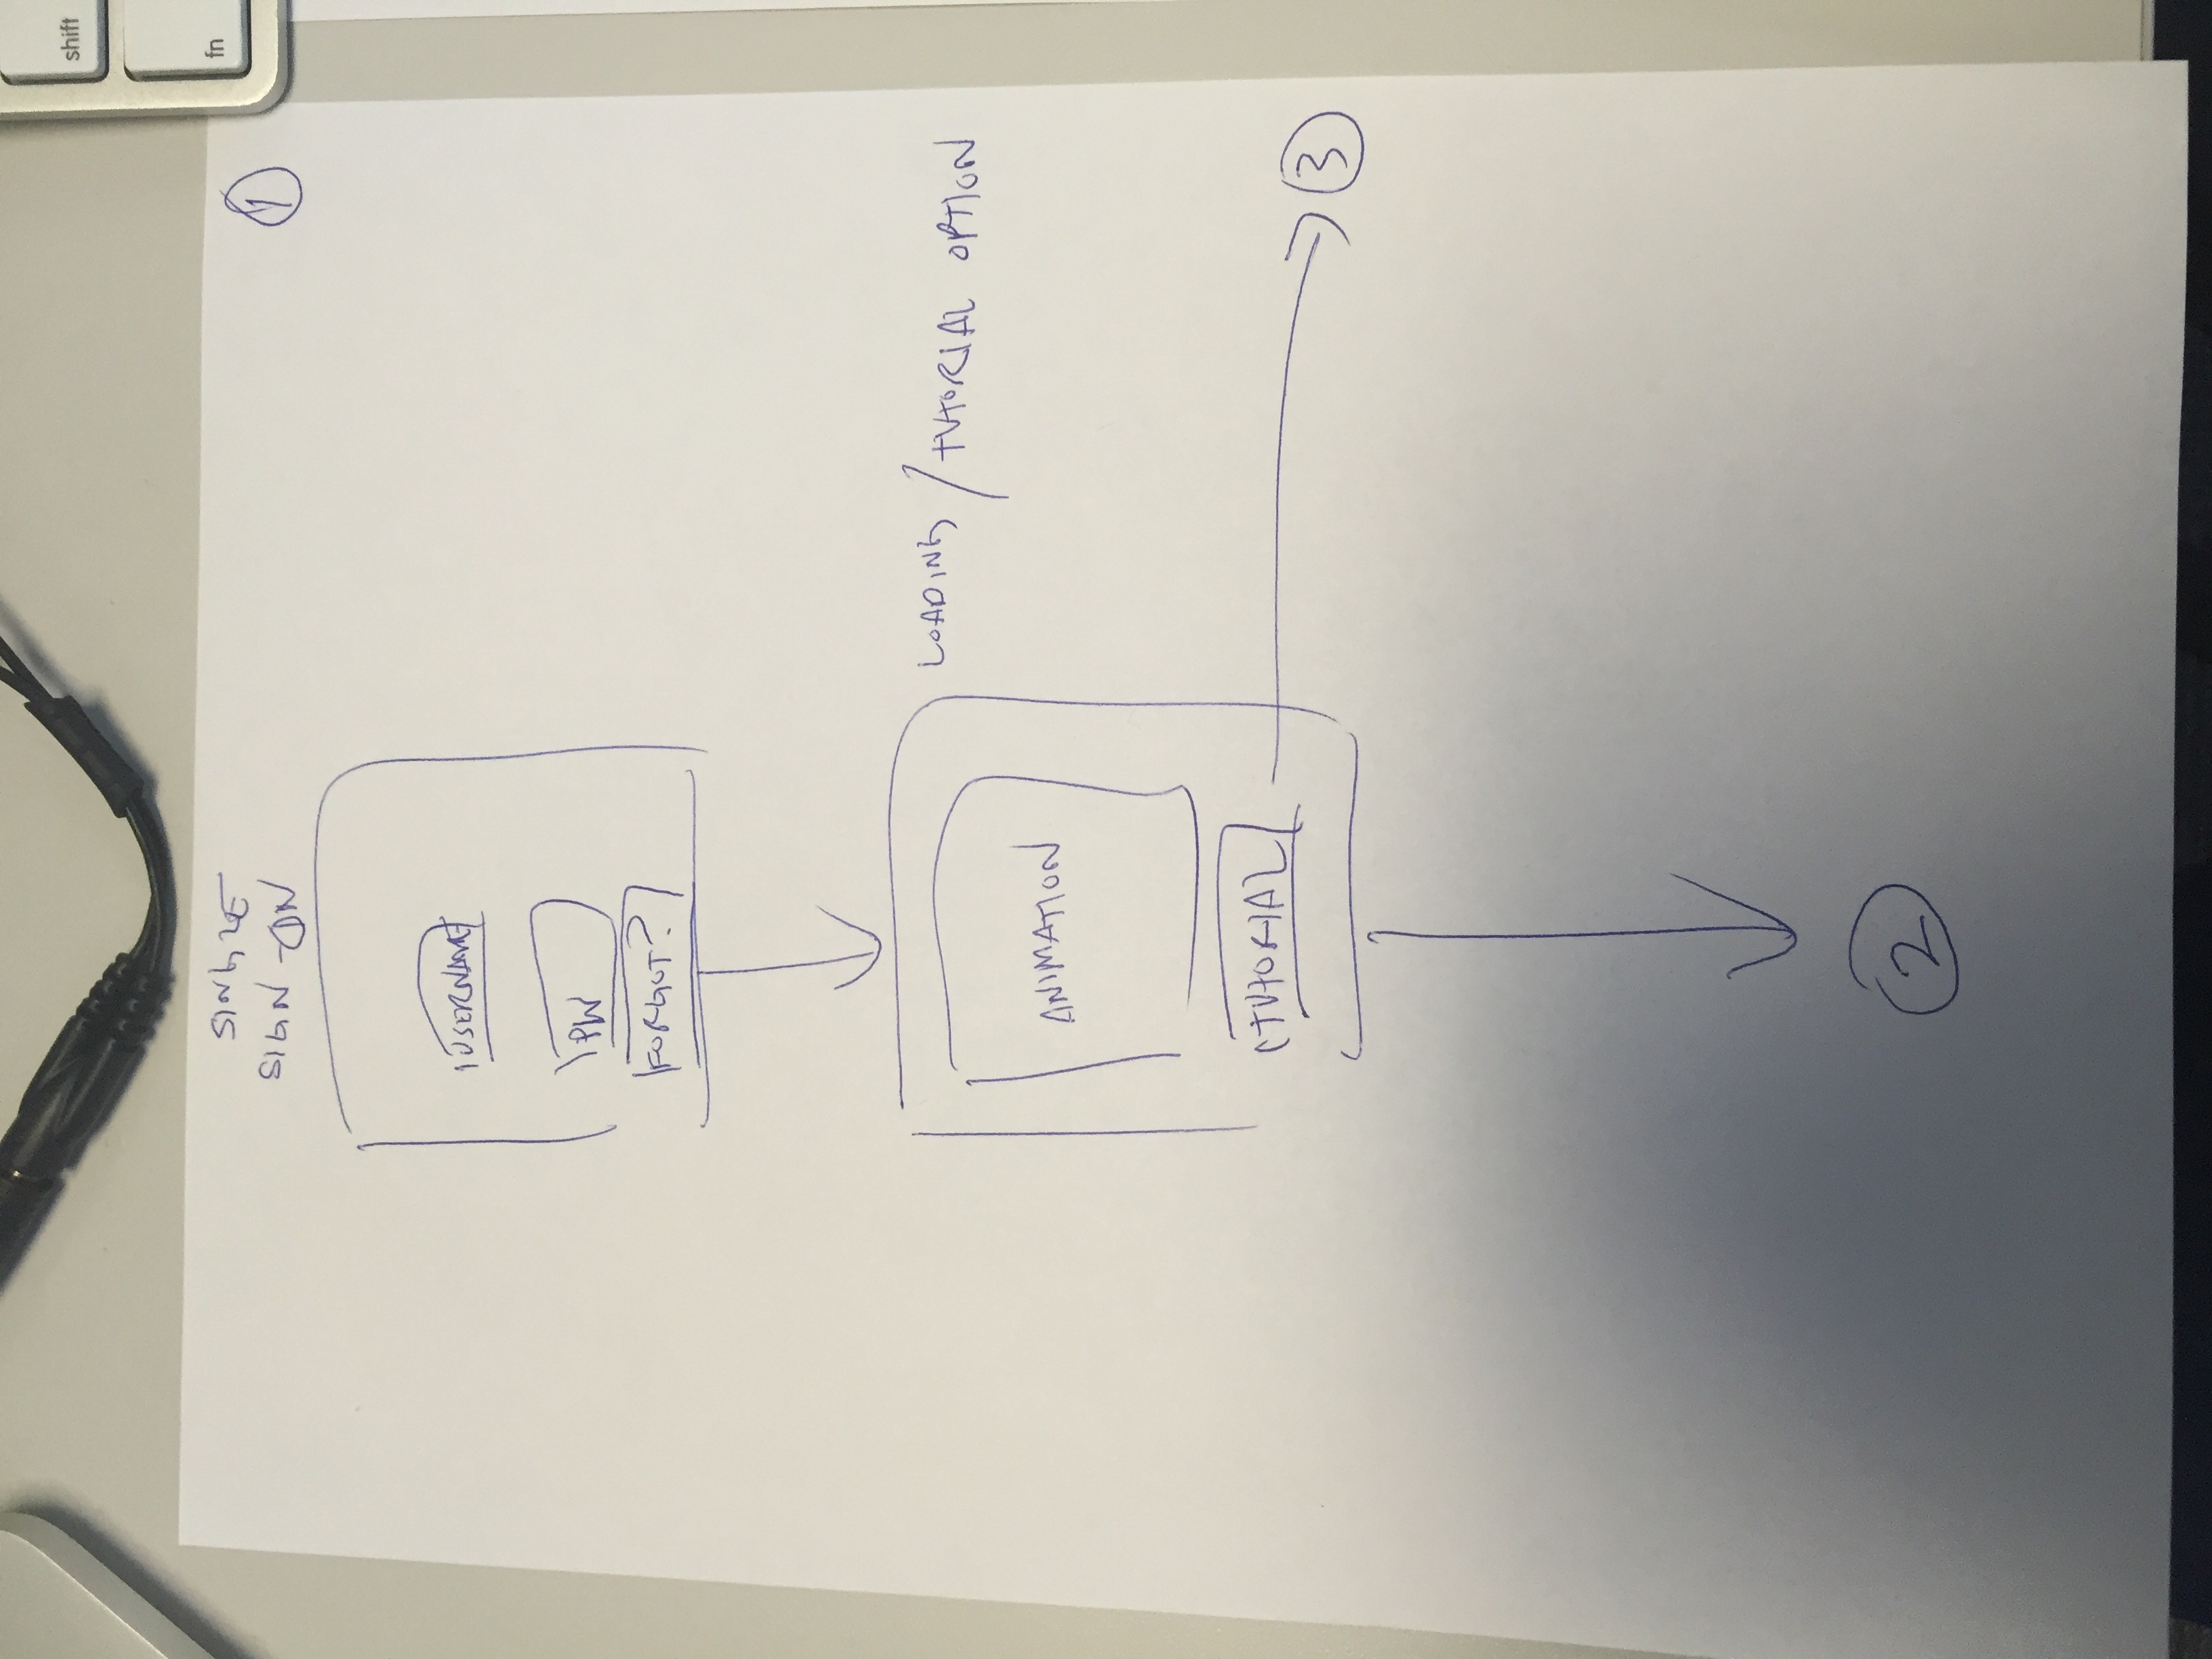 shift
fn
SINGLE
SIGN-ON
1
USERNAME
PW
FORGOT?
LOADING / TUTORIAL OPTION
ANIMATION
TUTORIAL
3
2